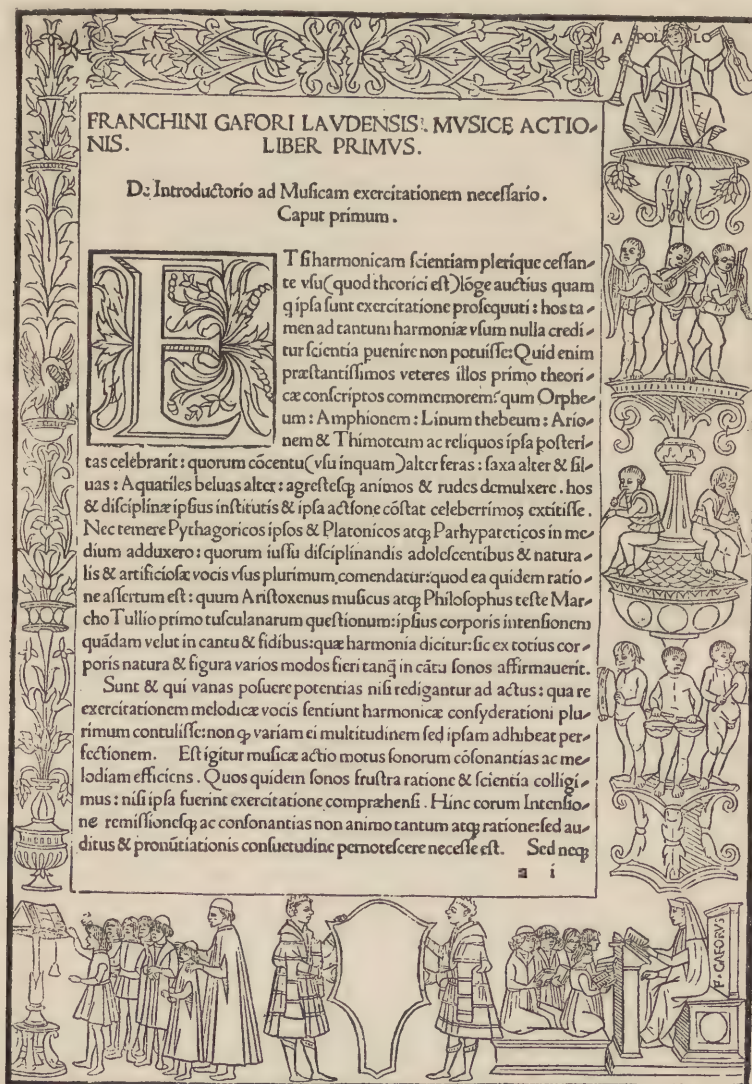 A POL LO
FRANCHINI GAFORI LAVDENSIS: MVSICE ACTIO-
NIS. LIBER PRIMVS.
De Introductorio ad Muſicam exercitationem neceſſario.
Caput primum.
ETſi harmonicam ſcientiam plerique ceſſan-
te vſu (quod theorici eſt) lõge auctius quam
q ipſa ſunt exercitatione proſequuti: hos ta-
men ad tantum harmoniæ vſum nulla credi-
tur ſcientia puenire non potuiſſe: Quid enim
præſtantiſſimos veteres illos primo theori-
cæ conſcriptos commemorem? qum Orphe-
um: Amphionem: Linum thebeum: Ario-
nem & Thimoteum ac reliquos ipſa poſteri-
tas celebrarit: quorum cõcentu (vſu inquam) alter feras: ſaxa alter & ſil-
uas: Aquatiles beluas alter: agreſteſqꝫ animos & rudes demulxere. hos
& diſciplinæ ipſius inſtitutis & ipſa actione cõſtat celeberrimos extitiſſe.
Nec temere Pythagoricos ipſos & Platonicos atqꝫ Parhypateticos in me
dium adduxero: quorum iuſſu diſciplinandis adoleſcentibus & natura-
lis & artificioſæ vocis vſus plurimum comendatur: quod ea quidem ratio-
ne aſſertum eſt: quum Ariſtoxenus muſicus atqꝫ Philoſophus teſte Mar-
cho Tullio primo tuſculanarum queſtionum: ipſius corporis intenſionem
quãdam velut in cantu & fidibus: quæ harmonia dicitur: ſic ex totius cor-
poris natura & figura varios modos fieri tanq̃ in cãtu ſonos affirmauerit.
Sunt & qui vanas poſuere potentias niſi redigantur ad actus: qua re
exercitationem melodicæ vocis ſentiunt harmonicæ conſyderationi plu-
rimum contuliſſe: non ꝙ variam ei multitudinem ſed ipſam adhibeat per-
fectionem. Eſt igitur muſicæ actio motus ſonorum cõſonantias ac me-
lodiam efficiens. Quos quidem ſonos fruſtra ratione & ſcientia colligi-
mus: niſi ipſa fuerint exercitatione compræhenſi. Hinc eorum Intenſio-
ne remiſſioneſqꝫ ac conſonantias non animo tantum atqꝫ ratione: ſed au-
ditus & pronũtiationis conſuetudine pernoteſcere neceſſe eſt. Sed neqꝫ
a i
F. GAFORVS